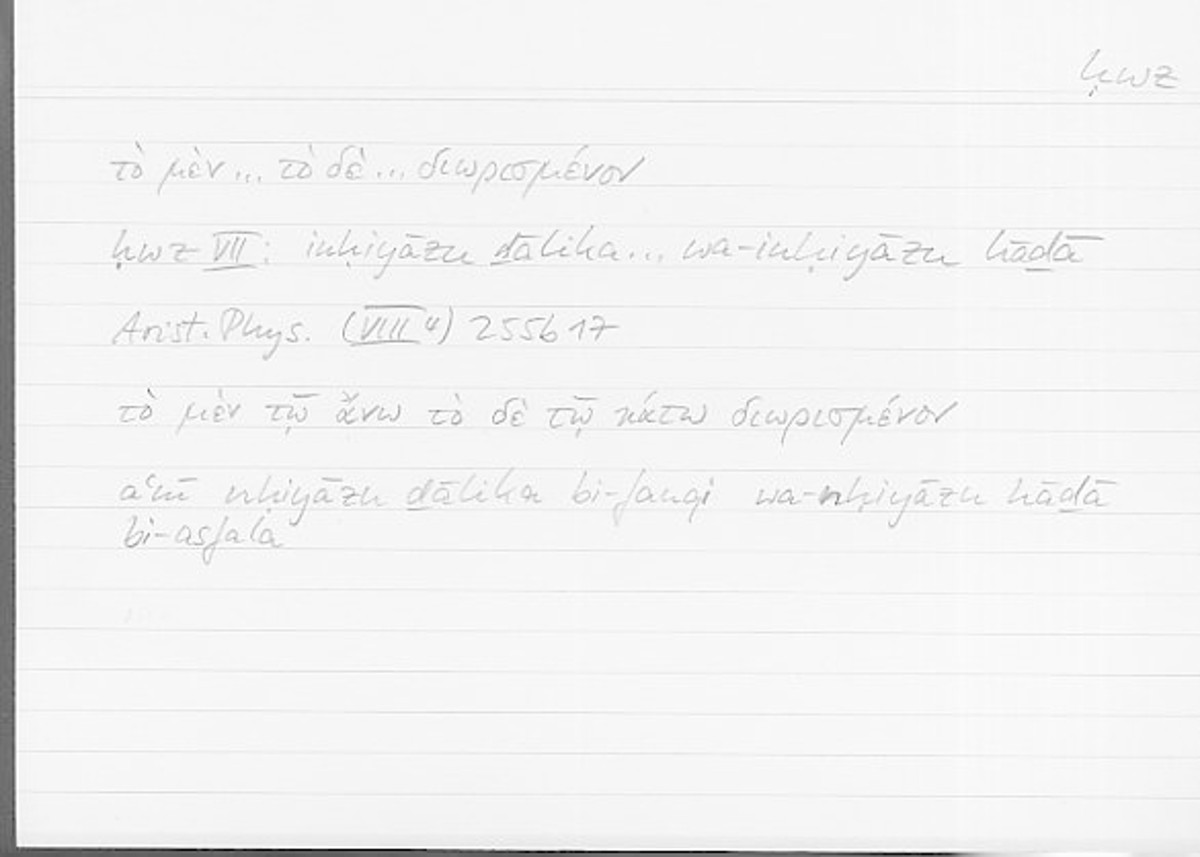 ḥwz
τὸ μὲν... τὸ δὲ... διωρισμένον
ḥwz VII: inḥiyāzu ḏālika... wa-inḥiyāzu hāḏā
Arist. Phys. (VIII 4) 255b17
τὸ μὲν τῷ ἄνω τὸ δὲ τῷ κάτω διωρισμένον
aʿnī nḥiyāzu ḏālika bi-fauqi wa-nḥiyāzu hāḏā
bi-asfala